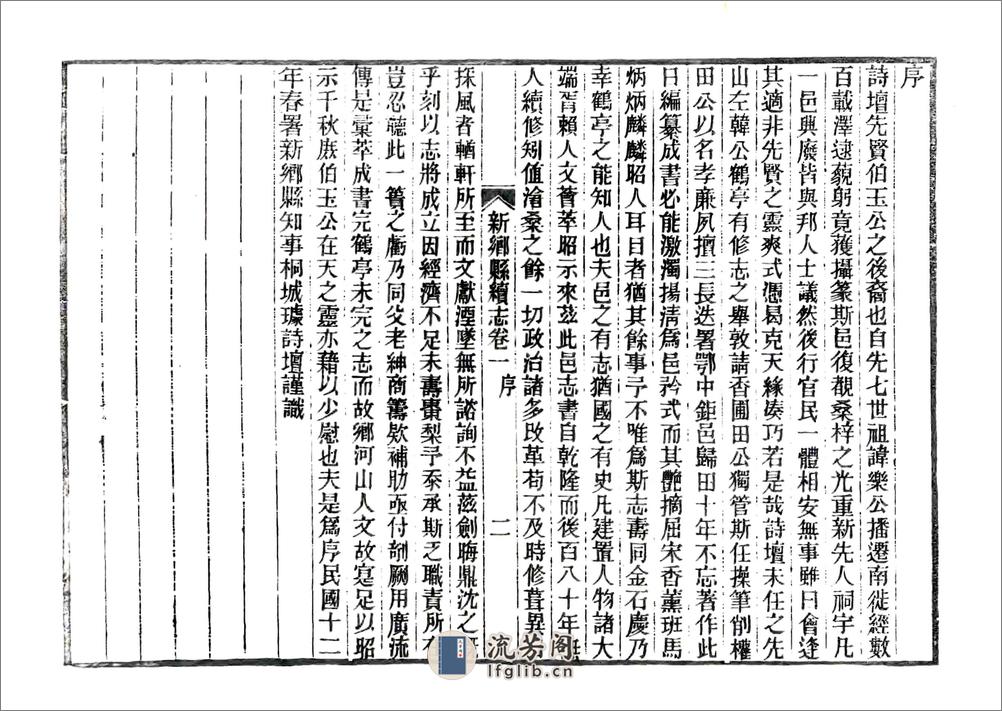 序
詩壇先賢伯玉公之後裔也自先七世祖諱樂公播遷南徙經數
百載澤逮藐躬竟獲攝篆斯邑復覩桑梓之光重新先人祠宇凡
一邑興廢皆與邦人士議然後行官民一體相安無事雖曰會逢
其適非先賢之靈爽式憑曷克天緣湊巧若是哉詩壇未任之先
山左韓公鶴亭有修志之舉敦請香圃田公獨管斯任操筆削權
田公以名孝廉夙擅三長迭署鄂中鉅邑歸田十年不忘著作此
日編纂成書必能激濁揚清爲邑矜式而其艷摘屈宋香薰班馬
炳炳麟麟昭人耳目者猶其餘事予不唯爲斯志壽同金石慶乃
幸鶴亭之能知人也夫邑之有志猶國之有史凡建置人物諸大
端胥賴人文薈萃昭示來茲此邑志書自乾隆而後百八十年無
人續修矧值滄桑之餘一切政治諸多改革苟不及時修葺異
新鄉縣續志卷一 序 二
採風者輶軒所至而文獻湮墜無所諮詢不益茲劍晦鼎沈之
乎刻以志將成立因經濟不足未壽棗梨予忝承斯乏職責所在
豈忍聽此一簣之虧乃同父老紳商籌欵補助亟付剞劂用廣流
傳是彙萃成書完鶴亭未完之志而故鄉河山人文故寔足以昭
示千秋庶伯玉公在天之靈亦藉以少慰也夫是爲序民國十二
年春署新鄉縣知事桐城璩詩壇謹識
流芳阁
lfglib.cn